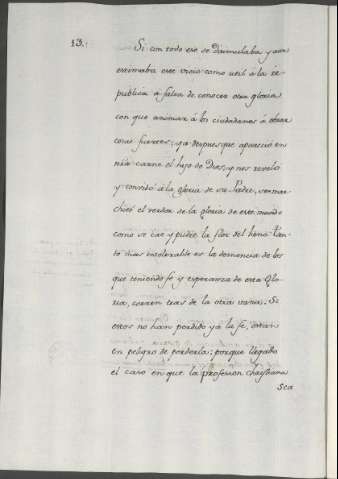 13.
Si con todo eso se disimulaba y aun
estimaba este vicio como util á la re-
publica a falta de conocer otra gloria
con que animar á los ciudadanos á obrar
cosas fuertes; ya despues que aparecio en
nra carne el hijo de Dios, y nos revelo
y convidó á la gloria de su Padre, se mar-
chitó el verdor de la gloria de este mundo
como se cae y pudre la flor del heno. Tan-
to mas intolerable es la demencia de los
que teniendo fé y esperanza de esta Glo-
ria, corren tras de la otra vana. Si
estos no han perdido ya la fé, estan
en peligro de perderla; porque llegado
el caso en que la profesion christiana
Sea